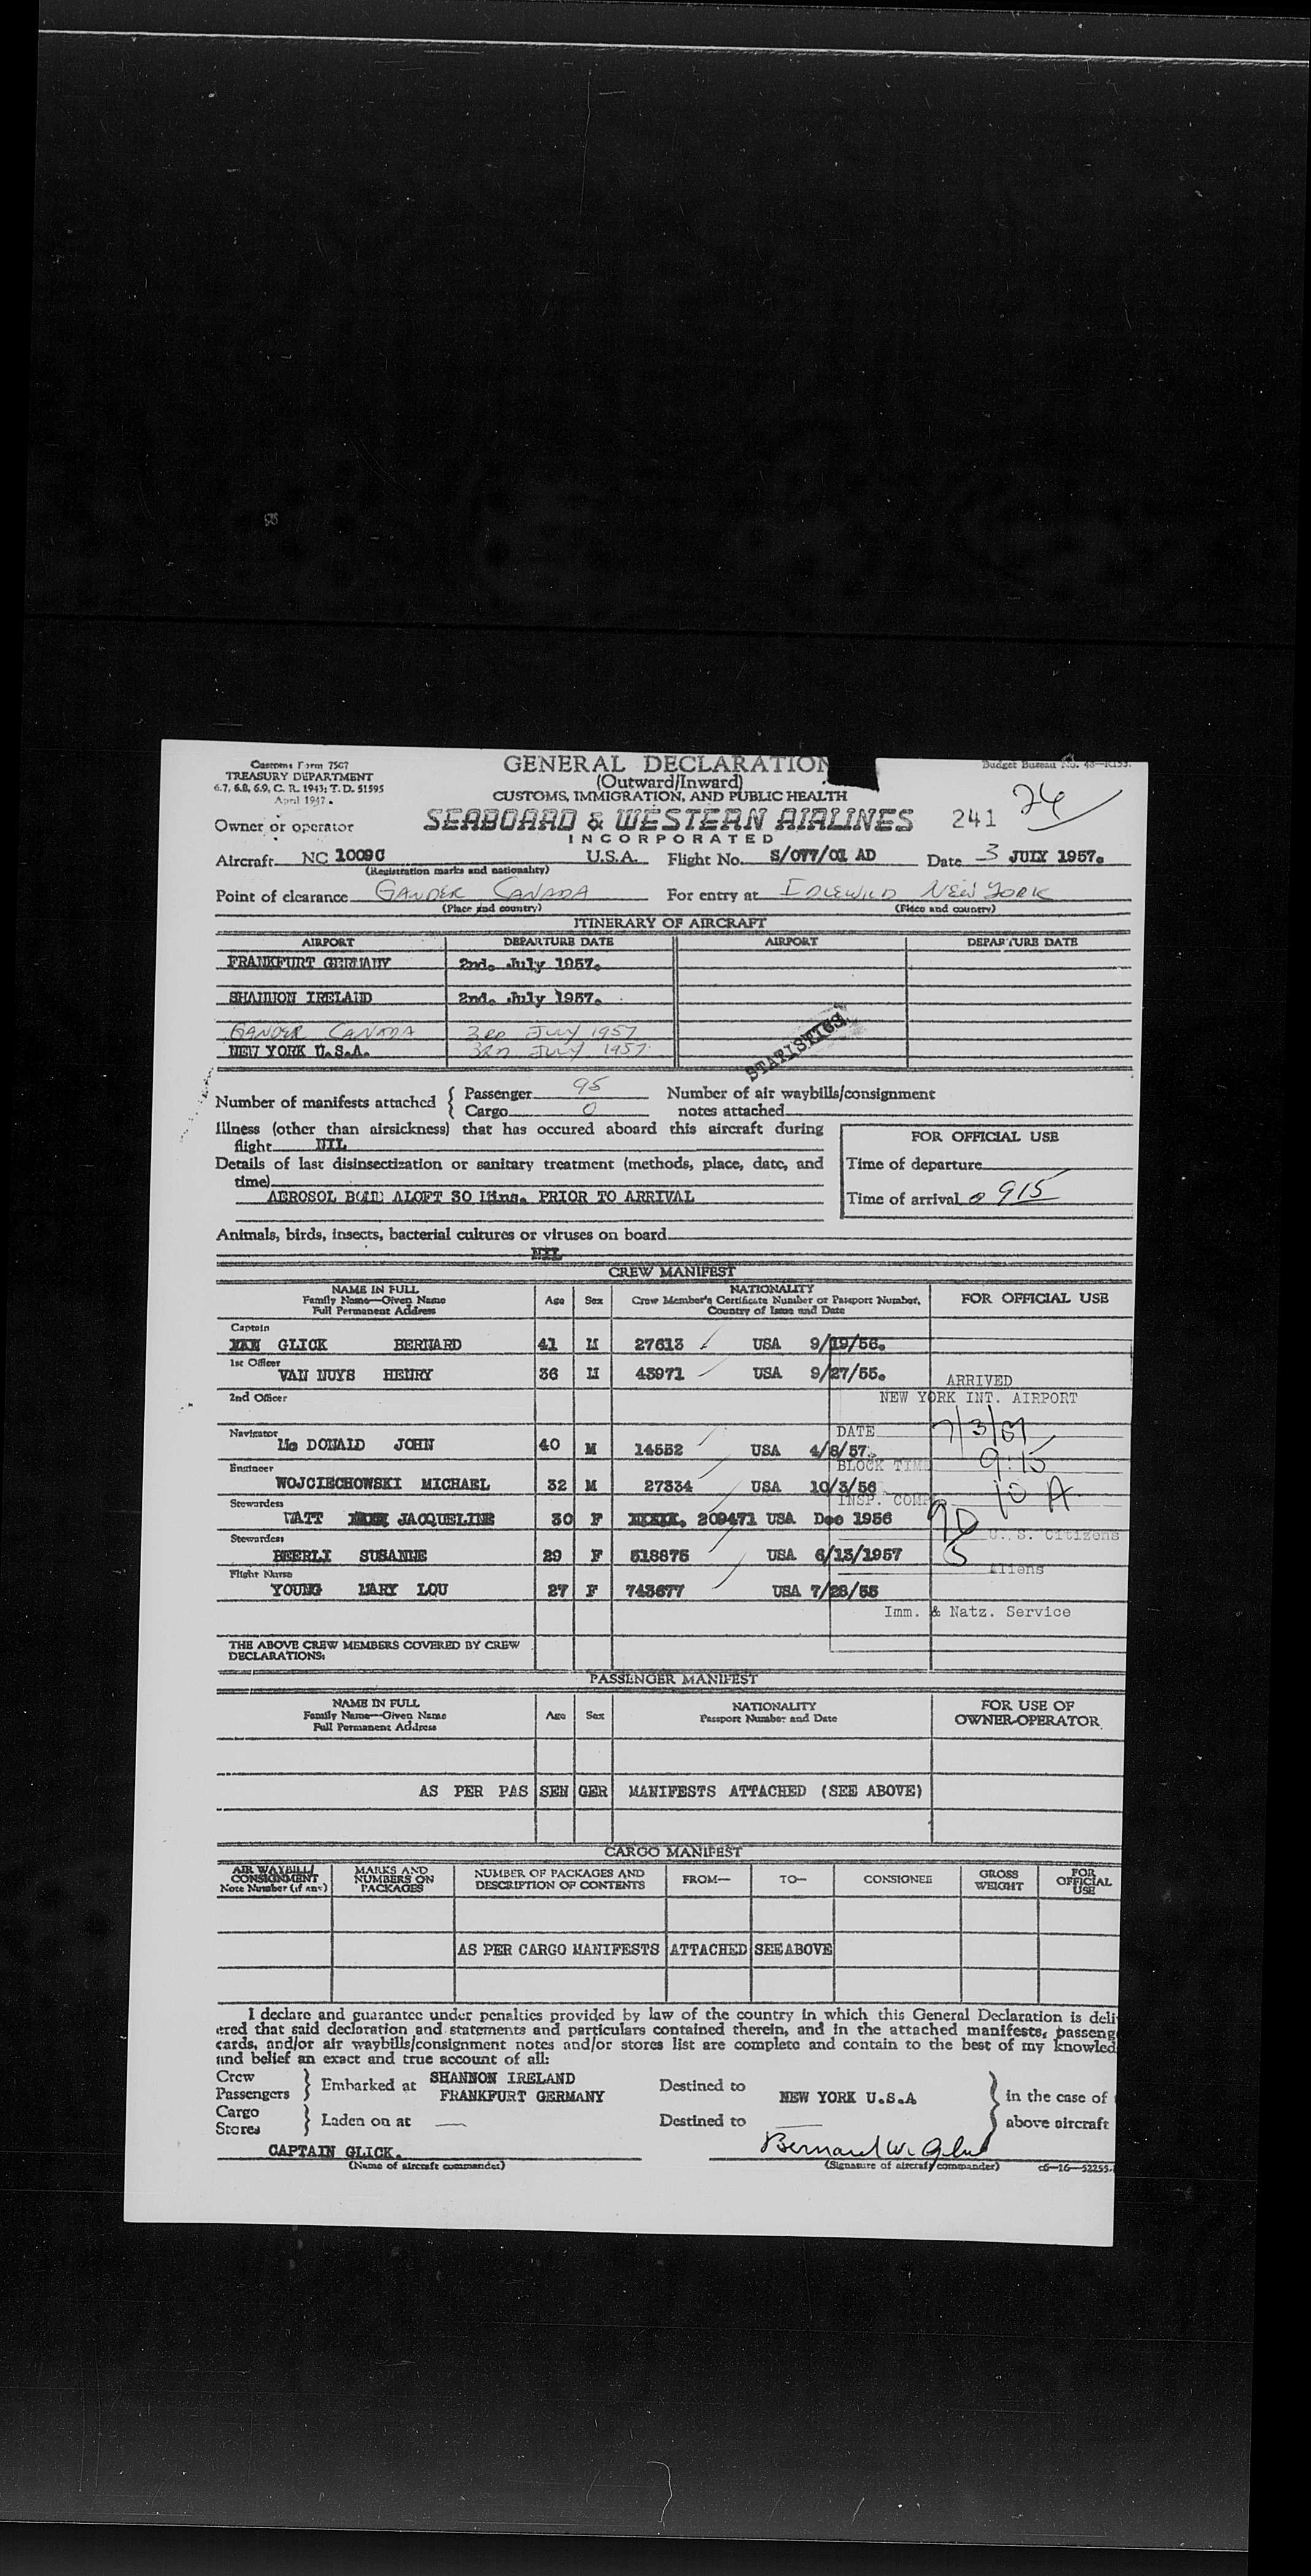 Customs Form 7507
TREASURY DEPARTMENT
6.7, 6.8, 6.9, C. R. 1943; T. D. 51595
April 1947.
GENERAL DECLARATION
(Outward/Inward)
CUSTOMS, IMMIGRATION, AND PUBLIC HEALTH
Budget Bureau No.
24
Owner or operator
SEABOARD & WESTERN AIRLINES
INCORPORATED
241
Aircraft NC 1009C U.S.A. Flight No. S/077/01 AD Date 3 JULY 1957.
(Registration marks and nationality)
Point of clearance GANDER CANADA For entry at IDLEWILD NEW YORK
(Place and country) (Place and country)
ITINERARY OF AIRCRAFT
AIRPORT DEPARTURE DATE AIRPORT DEPARTURE DATE
FRANKFURT GERMANY 2nd. July 1957.
SHANNON IRELAND 2nd. July 1957.
GANDER CANADA 3RD JULY 1957
NEW YORK U.S.A. 3RD JULY 1957.
STATISTICS
Number of manifests attached { Passenger 95
Cargo 0
Number of air waybills/consignment
notes attached
Illness (other than airsickness) that has occured aboard this aircraft during
flight NIL
FOR OFFICIAL USE
Details of last disinsectization or sanitary treatment (methods, place, date, and
time)
Time of departure
AEROSOL BOMB ALOFT 30 Mins. PRIOR TO ARRIVAL
Time of arrival 915
Animals, birds, insects, bacterial cultures or viruses on board
NIL
CREW MANIFEST
NAME IN FULL
Family Name—Given Name
Full Permanent Address
Age Sex
NATIONALITY
Crew Member's Certificate Number or Passport Number,
Country of Issue and Date
FOR OFFICIAL USE
Captain
GLICK BERNARD 41 M 27613 USA 9/19/56.
1st Officer
VAN NUYS HENRY 36 M 43971 USA 9/27/55.
ARRIVED
2nd Officer
NEW YORK INT. AIRPORT
DATE 7/3/57
Navigator
Mc DONALD JOHN 40 M 14552 USA 4/8/57.
BLOCK TIME 9:15
Engineer
WOJCIECHOWSKI MICHAEL 32 M 27334 USA 10/3/56
INSP. COMP. 10 A
Stewardess
WATT JACQUELINE 30 F 209471 USA Dec 1956
90 U. S. Citizens
Stewardess
BEERLI SUSANNE 29 F 518875 USA 6/13/1957
5 Aliens
Flight Nurse
YOUNG MARY LOU 27 F 743677 USA 7/28/55
Imm. & Natz. Service
THE ABOVE CREW MEMBERS COVERED BY CREW
DECLARATIONS:
PASSENGER MANIFEST
NAME IN FULL
Family Name—Given Name
Full Permanent Address
Age Sex
NATIONALITY
Passport Number and Date
FOR USE OF
OWNER-OPERATOR
AS PER PAS SEN GER MANIFESTS ATTACHED (SEE ABOVE)
CARGO MANIFEST
AIR WAYBILL/
CONSIGNMENT
Note Number (if any)
MARKS AND
NUMBERS ON
PACKAGES
NUMBER OF PACKAGES AND
DESCRIPTION OF CONTENTS
FROM— TO— CONSIGNEE
GROSS
WEIGHT
FOR
OFFICIAL
USE
AS PER CARGO MANIFESTS ATTACHED SEE ABOVE
I declare and guarantee under penalties provided by law of the country in which this General Declaration is deli
ered that said declaration and statements and particulars contained therein, and in the attached manifests, passeng
cards, and/or air waybills/consignment notes and/or stores list are complete and contain to the best of my knowled
and belief an exact and true account of all:
Crew
Passengers } Embarked at SHANNON IRELAND
FRANKFURT GERMANY
Destined to NEW YORK U.S.A
in the case of
Cargo
Stores } Laden on at —
Destined to —
above aircraft
CAPTAIN GLICK.
(Name of aircraft commander)
Bernard W. Glick
(Signature of aircraft commander)
c6—16—52255-